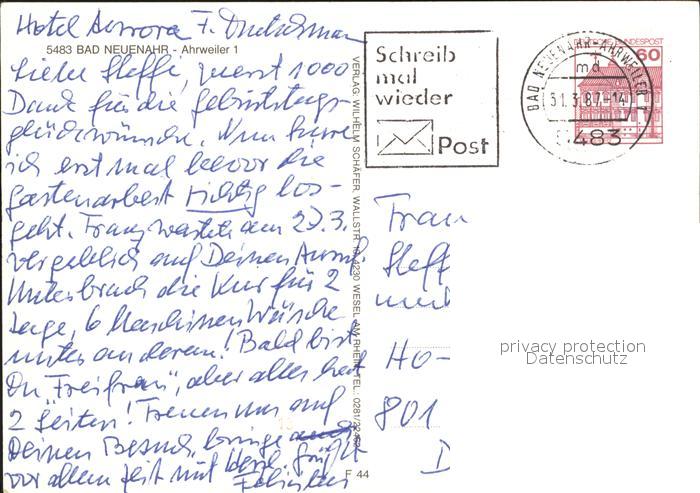 Hotel Aurora
5483 BAD NEUENAHR - Ahrweiler 1
Liebe Steffi, zuerst 1000
Dank für die Geburtstags-
glückwünsche. Nun
ich erst mal bevor die
Gartenarbeit richtig los-
geht. Franz wartete am 27.3.
vergeblich auf Deinen Anruf.
Unterbrach die Kur für 2
Tage, 6 Maschinen Wäsche
unter anderem! Bald bist
Du "Freifrau", aber alles hat
2 Seiten! Freuen uns auf
Deinen Besuch, bringe
vor allem Zeit mit
F 44
VERLAG: WILHELM SCHÄFER, WALLSTR. 4230 WESEL AM RHEIN, TEL.: 0281/
Schreib
mal
wieder
Post
BAD NEUENAHR-AHRWEILER 1
md
31.3.87-14
5483
BUNDESPOST
60
Frau
Steff
und
HO-
801
D
privacy protection
Datenschutz